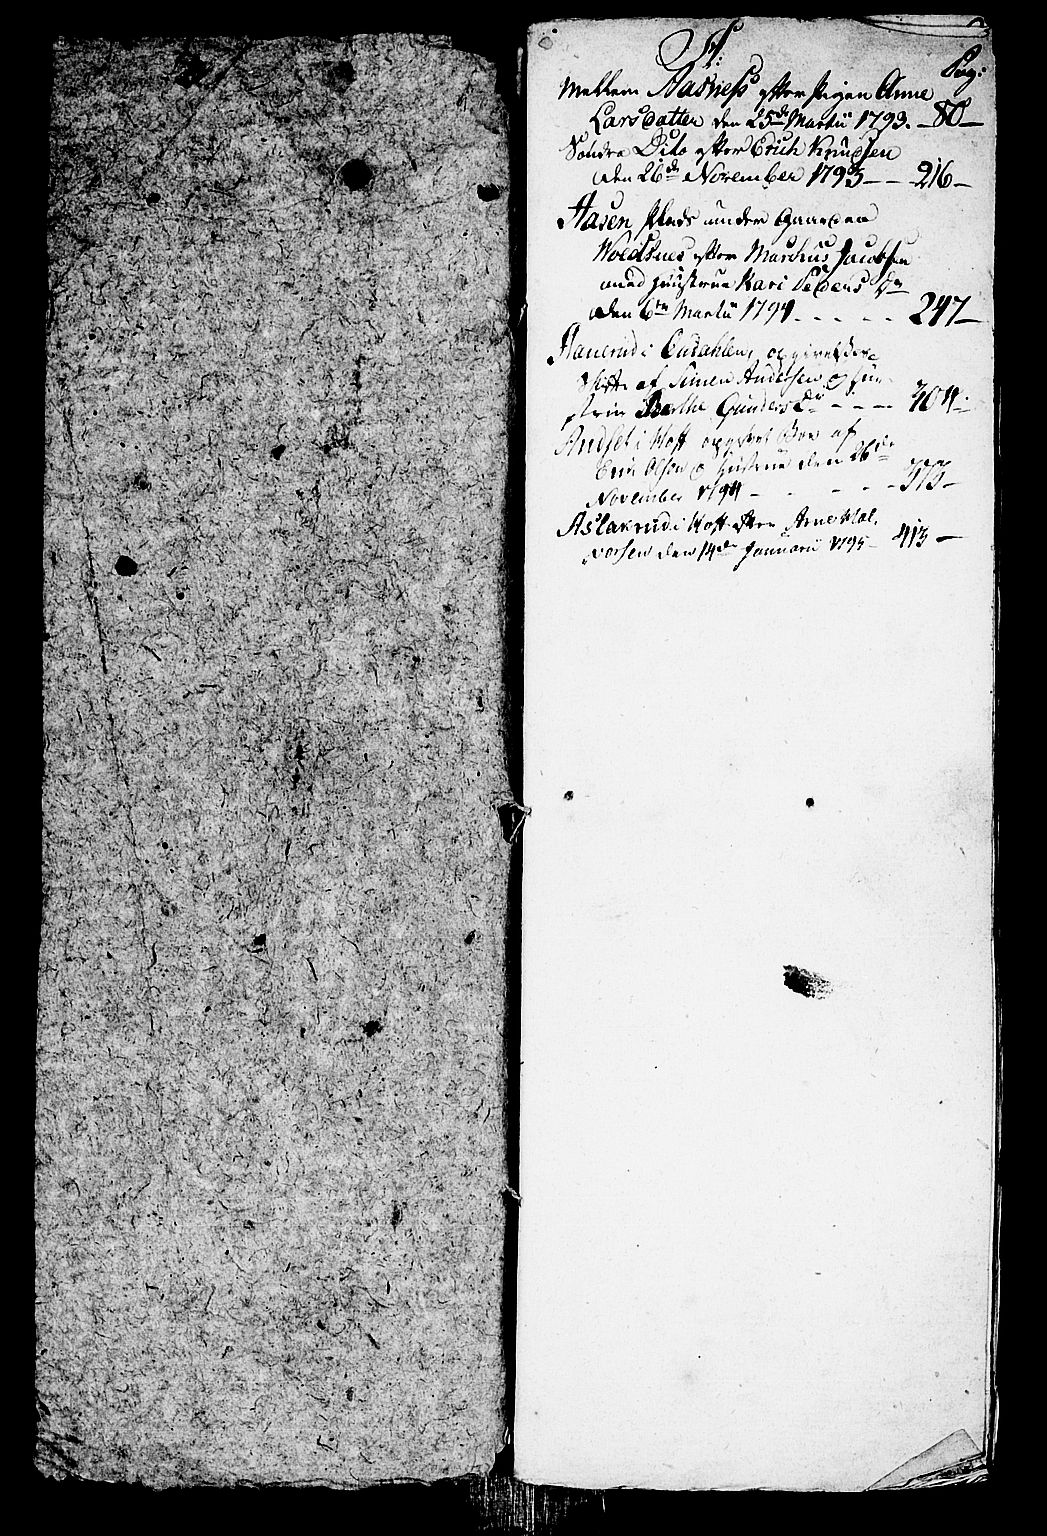 A:
Pag:
Mellem Aasness efter Pigen Anne
Larsdatter den 25de Martii 1793. — 80 —
Søndre Dito efter Erich Knudsen
den 26de November 1793 — — 216 —
Aasen Plads under Gaarden
Woldsnes efter Marchus Jacobsen
med Hustrue Kari Peders Dr
den 6te Martii 1794 - - - - - 247 —
i opgivet Boe
Skifte af Simen Andersen og Hu-
strue Berthe Gunders Dr - - - - 304
i Hoff opgivet Boe af
Erik Olsen og Hustrue den 26de
November 1794 - - - - - 373 —
Aslakrud i Hoff efter Arne Hal-
vorsen den 14de Januarii 1795 - 413 —